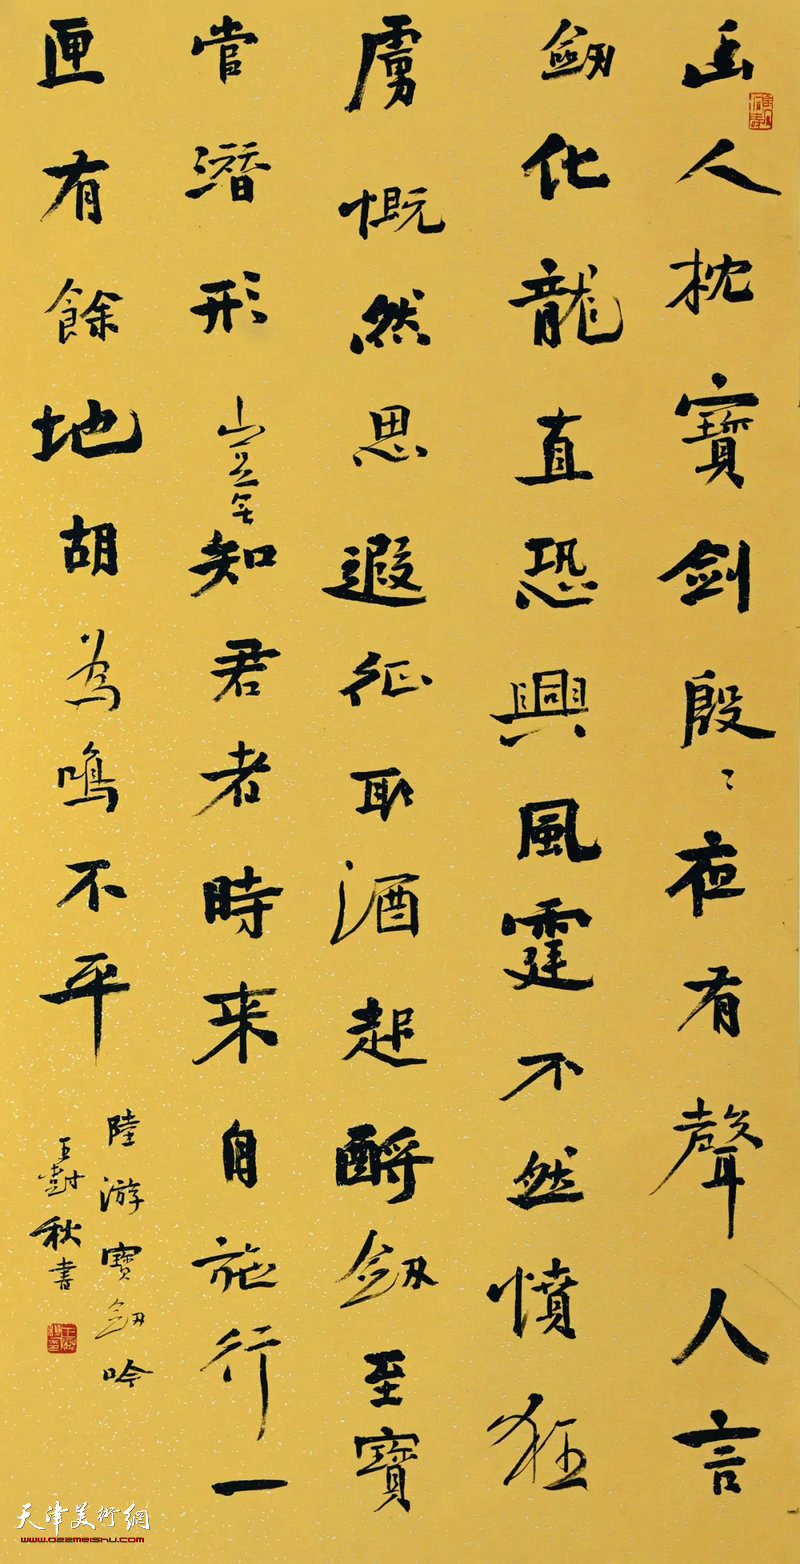 幽人枕寶劍殷〻夜有聲人言
劔化龍直恐興風霆不然憤狂
虜慨然思遐征取酒起酹劔至寶
嘗潛形豈無知君者時来自施行一
匣有餘地胡為鳴不平
陸游寶劔吟
王樹秋書
天津美術網
www.022meishu.com